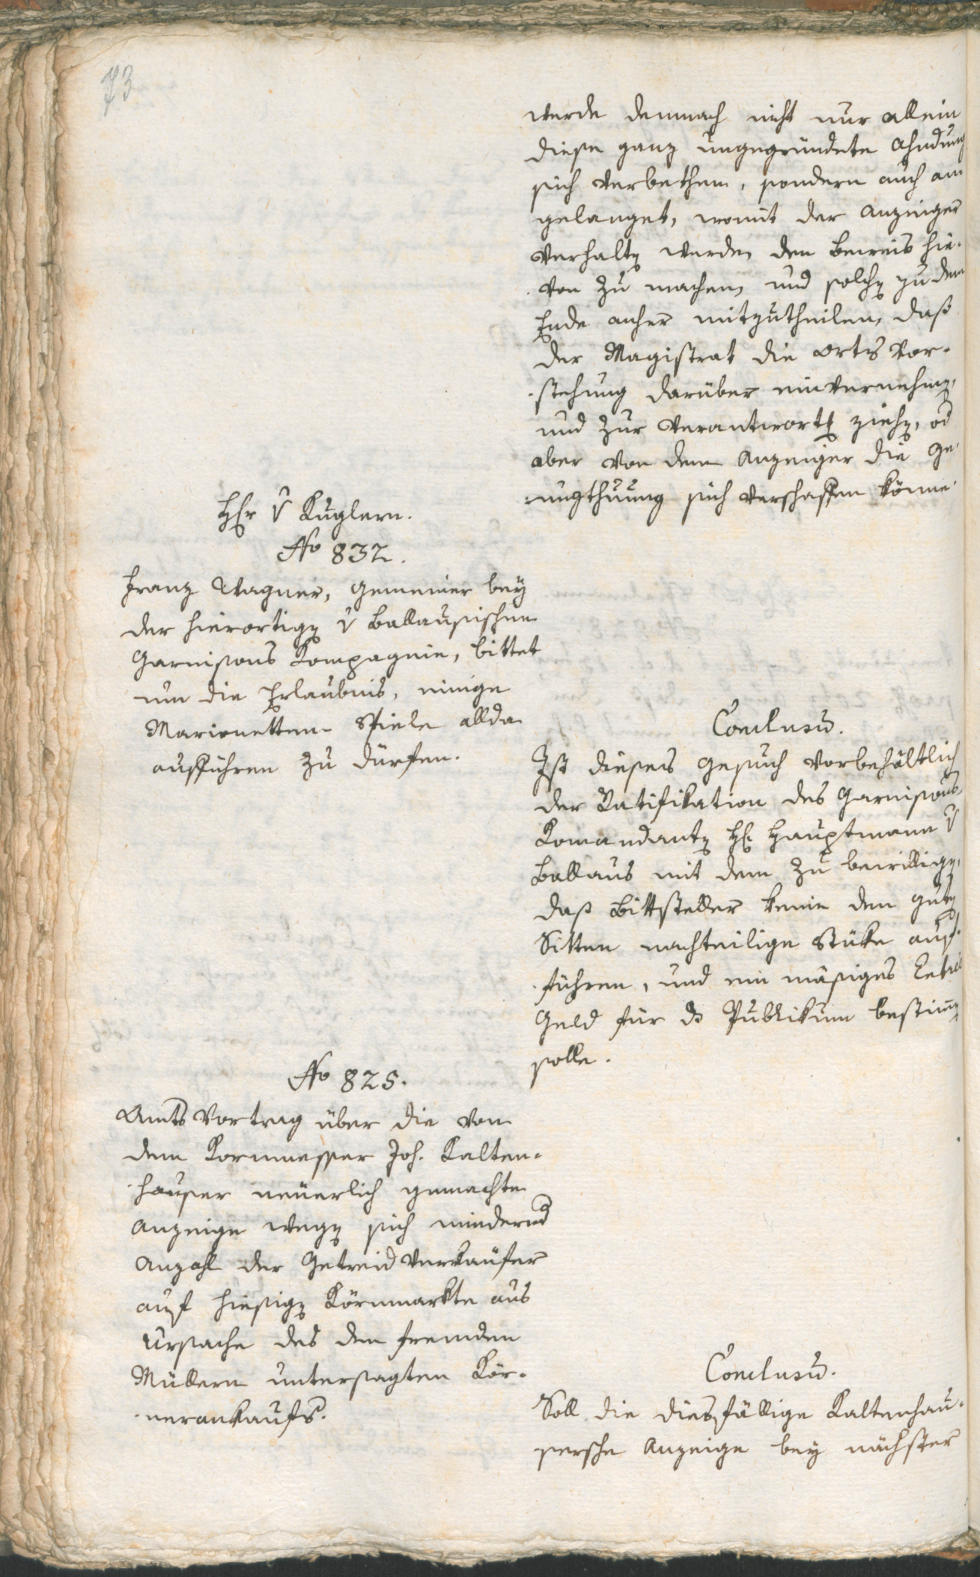 73
werde demnach nicht nur allein
diese ganz ungegründete Ahndung
sich verbethen, sondern auch an¬
gelanget, womit der Anzeiger
verhaltē werde, den Beweis hie¬
von zu machen, und solchē zu dem
Ende anher mitzutheilen, daß
der Magistrat die Orts Vor¬
stehung darüber einvernehmē,
und zur Verantwortg ziehē, od
aber von dem Anzeiger die Ge¬
nugthuung sich verschaffen könne.
H͞r v Kuglern.
No 832.
Franz Wagner, Gemeiner bey
der hierortigē v Ballausischen
Garnisons Kompagnie, bittet
um die Erlaubnis, einige
Marionetten Spiele allda
aufführen zu dürfen.
Conclusū.
Ist dieses Gesuch vorbehältlich
der Ratifikation des Garnisons
Komandantē H: Hauptmann v
Ballaus mit dem zu bewilligē,
daß Bittsteller keine den gutē
Sitten nachteilige Stüke auf¬
führen, und ein mäsiges
Geld für ds Publikum bestim̄ē
solle.
No 825.
Amts Vortrag über die von
dem Kornmesser Joh. Kalten¬
hauser neuerlich gemachte
Anzeige wegē sich mindernd
Anzahl der Getreid Verkäufer
auf hiesigē Körnmarkte aus
Ursache des den fremden
Müllern untersagten Kör¬
nerankaufs.
Conclusū.
Soll die diesfällige Kaltenhau¬
sersche Anzeige bey nächster